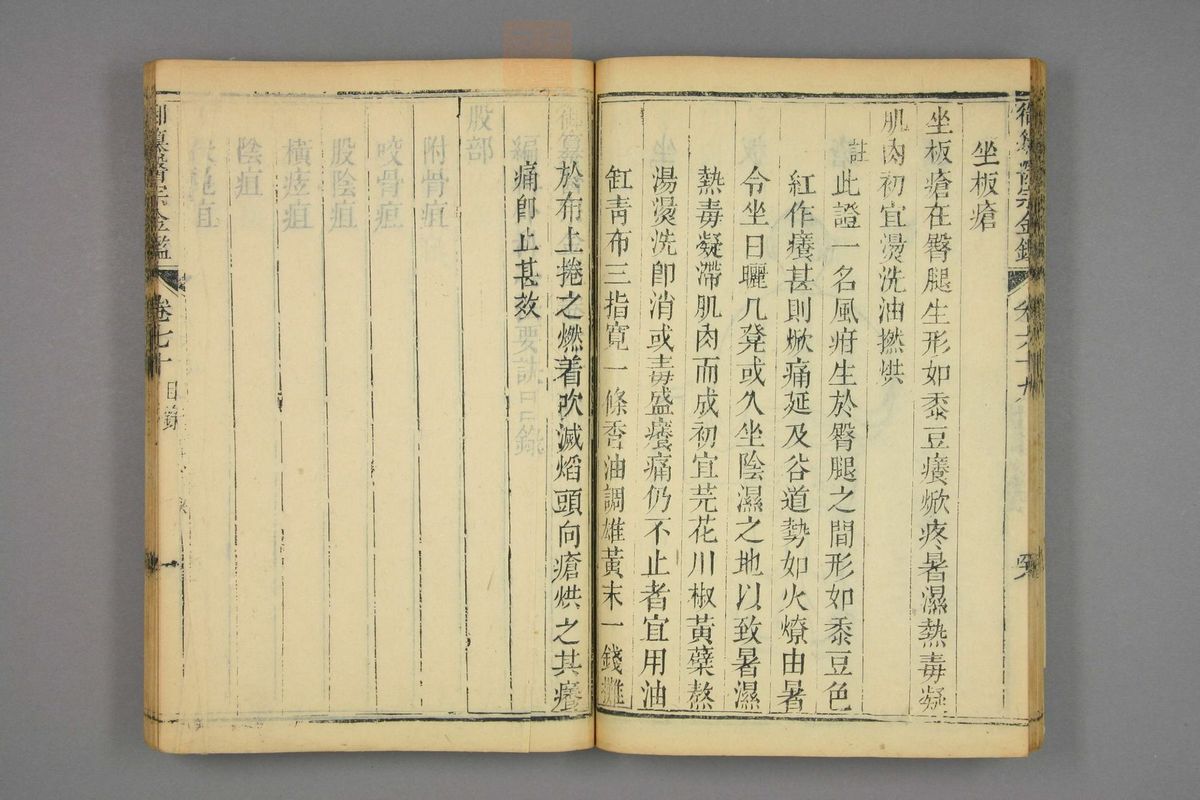 坐板瘡
坐板瘡在臀腿生形如黍豆癢焮疼暑濕熱毒凝
肌肉初宜燙洗油撚烘
註此證一名風疳生於臀腿之間形如黍豆色
紅作癢甚則焮痛延及谷道勢如火燎由暑
令坐日曬几凳或久坐陰濕之地以致暑濕
熱毒凝滯肌肉而成初宜芫花川椒黃蘗熬
湯燙洗卽消或毒盛癢痛仍不止者宜用油
缸靑布三指寬一條香油調雄黃末一錢攤
於布上捲之燃着吹滅焰頭向瘡烘之其癢
痛卽止甚效
御纂醫宗金鑑
卷七十
目錄
一
股部
附骨疽
咬骨疽
股陰疽
橫痃疽
陰疽